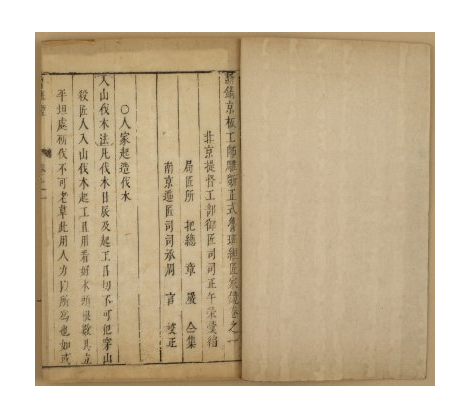 新鐫京板工師雕斵正式魯班經匠家鏡卷之一
北京提督工部御匠司司正午榮彙編
局匠所 把總 章嚴 仝集
南京逓匠司司承周言校正
○人家起造伐木
入山伐木法凡伐木日辰及起工日切不可犯穿山
殺匠人入山伐木起工且用看好木頭根數具立
平坦處斫伐不可老草此用人力以所爲也如或